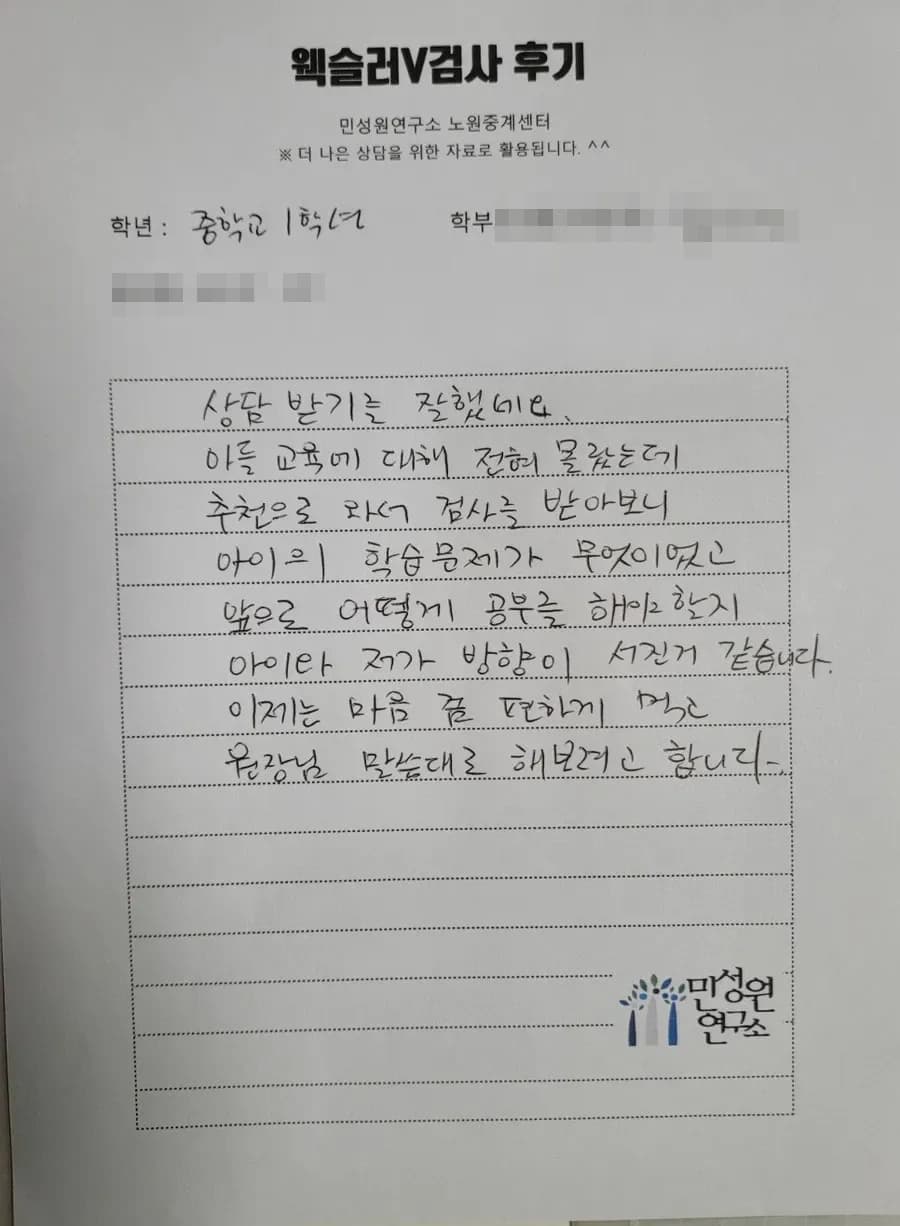 웩슬러V검사 후기
민성원연구소 노원중계센터
※ 더 나은 상담을 위한 자료로 활용됩니다. ^^
학년 : 중학교 1학년 학부
상담 받기를 잘했네요.
아들 교육에 대해 전혀 몰랐는데
추천으로 와서 검사를 받아보니
아이의 학습문제가 무엇이었고
앞으로 어떻게 공부를 해야 할지
아이랑 저가 방향이 서진거 같습니다.
이제는 마음 좀 편하게 먹고
원장님 말씀대로 해보려고 합니다.
민성원
연구소